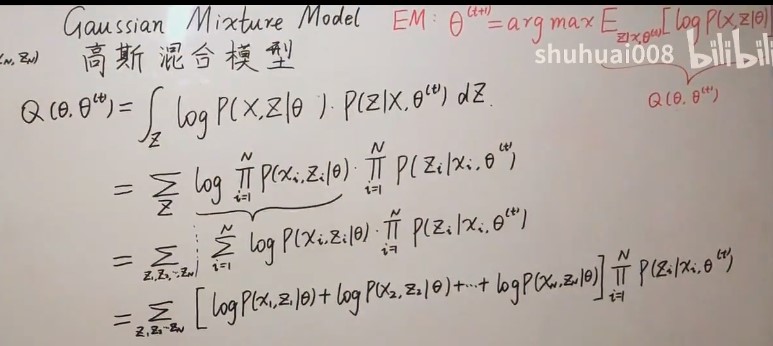 Gaussian Mixture Model EM: θ^(t+1) = arg max E_{Z|X,θ^(t)} [log P(X,Z|θ)]
(x_N, z_N) 高斯混合模型 shuhuai008 bilibili
Q(θ,θ^(t))
Q(θ,θ^(t)) = ∫_Z log P(X,Z|θ) · P(Z|X,θ^(t)) dZ.
= ∑_Z log ∏_{i=1}^N P(x_i,z_i|θ) · ∏_{i=1}^N P(z_i|x_i,θ^(t))
= ∑_{z_1,z_2,…z_N} ∑_{i=1}^N log P(x_i,z_i|θ) · ∏_{i=1}^N P(z_i|x_i,θ^(t))
= ∑_{z_1,z_2…z_N} [log P(x_1,z_1|θ) + log P(x_2,z_2|θ) + ⋯ + log P(x_N,z_N|θ)] ∏_{i=1}^N P(z_i|x_i,θ^(t))